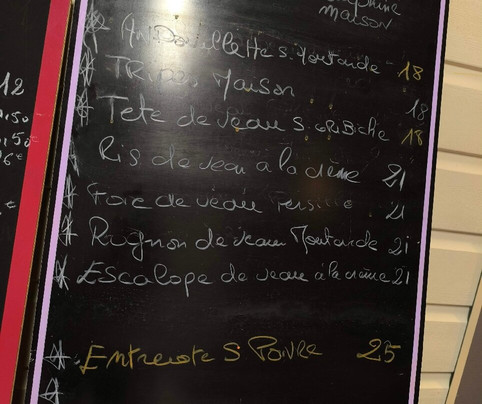 maison
Andouillette S. Moutarde 18
TRIPES Maison 18
Tete de veau S. GRIBiche 18
Ris de veau a la crème 21
Foie de veau Persillé 21
Rognon de veau Moutarde 21
Escalope de veau à la crème 21
Entrecote S POIVRE 25
12